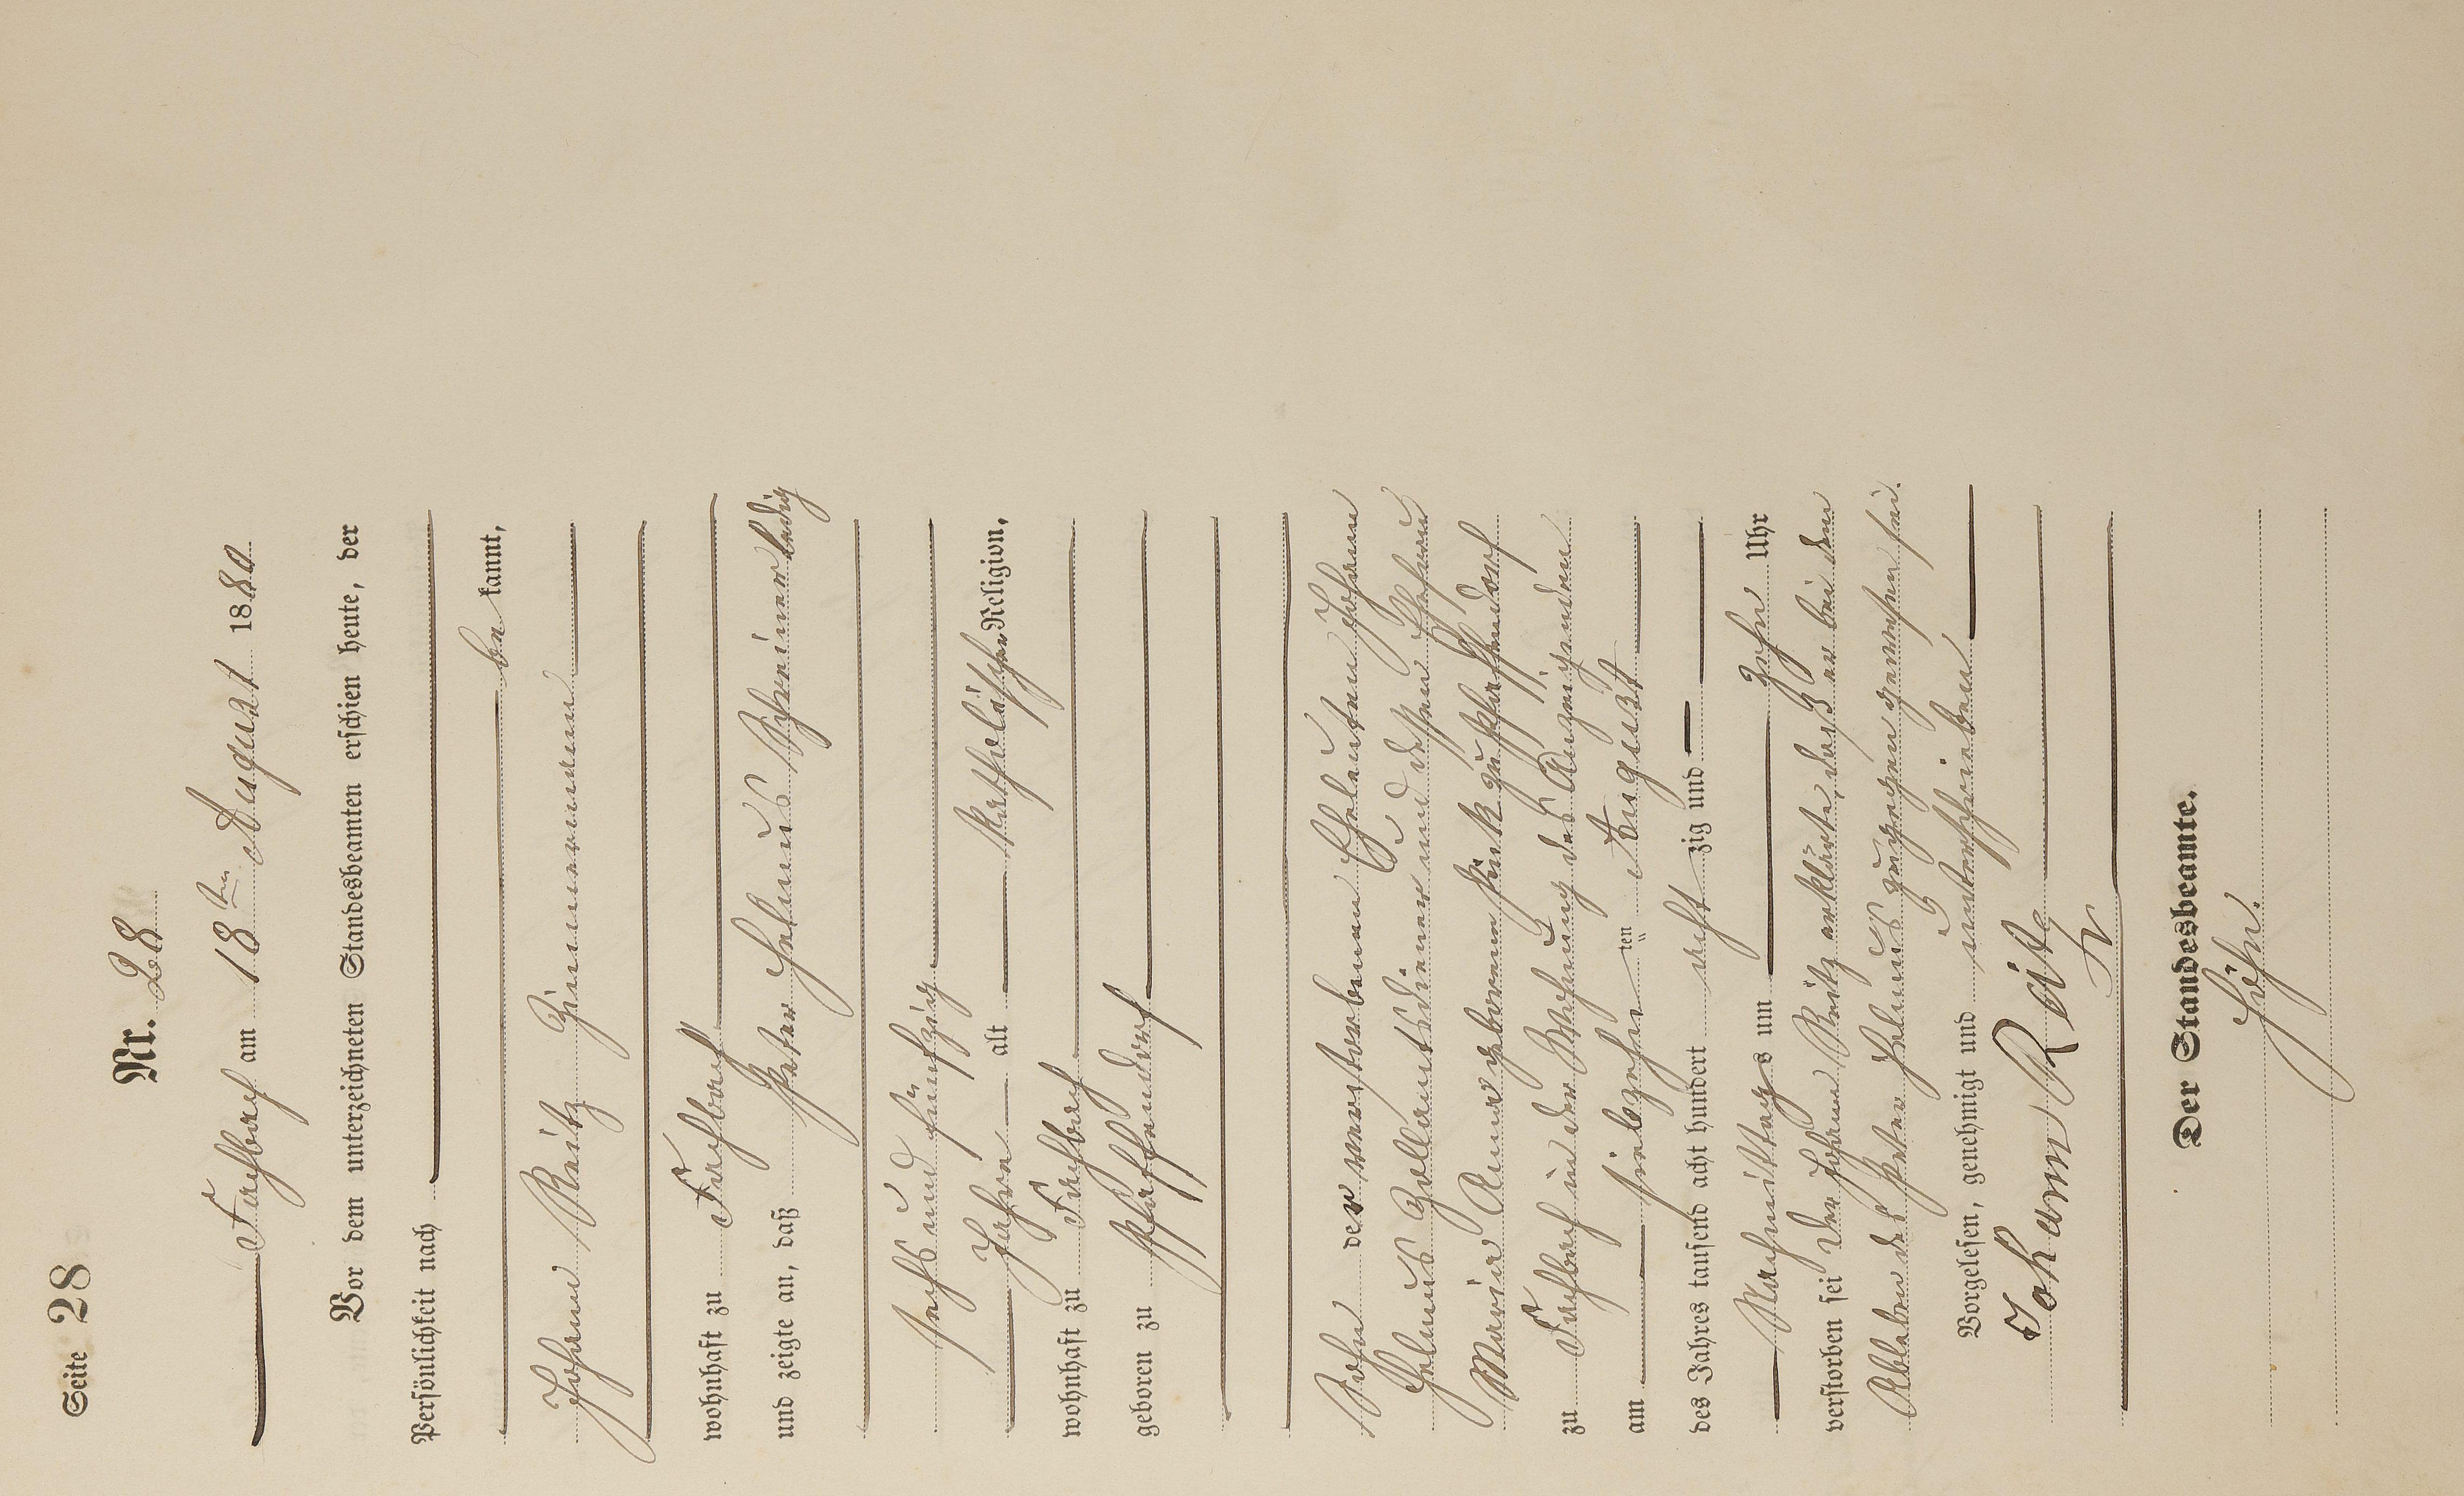 Seite 28
Nr. 28
Fachbach am 18ten August 1880
Vor dem unterzeichneten Standesbeamten erschien heute, der
Persönlichkeit nach
be kannt,
Johann Reitz Zimmermann
wohnhaft zu Fachbach
und zeigte an, daß Peter Helmus Schreiner ledig
sechs und fünfzig
Jahre alt katholischer Religion,
wohnhaft zu Fachbach
geboren zu Pfaffendorf
Sohn der verstorbenen Eheleuten Johann
Helmus Zollamtsdiener und dessen Ehefrau
Maria Anna geborenen Fink zu Pfaffendorf
zu Fachbach in der Wohnung des Anzeigenden
am siebzehn ten August
des Jahres tausend acht hundert acht zig und
Nachmittags um zehn Uhr
verstorben sei Der Johann Reitz erklärte, daß er bei dem
Ableben des Peter Helmus zugegen gewesen sei.
Vorgelesen, genehmigt und unterschrieben
Johann Reitz
Der Standesbeamte.
Höhn.